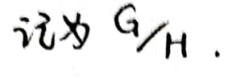 记为 G/H.